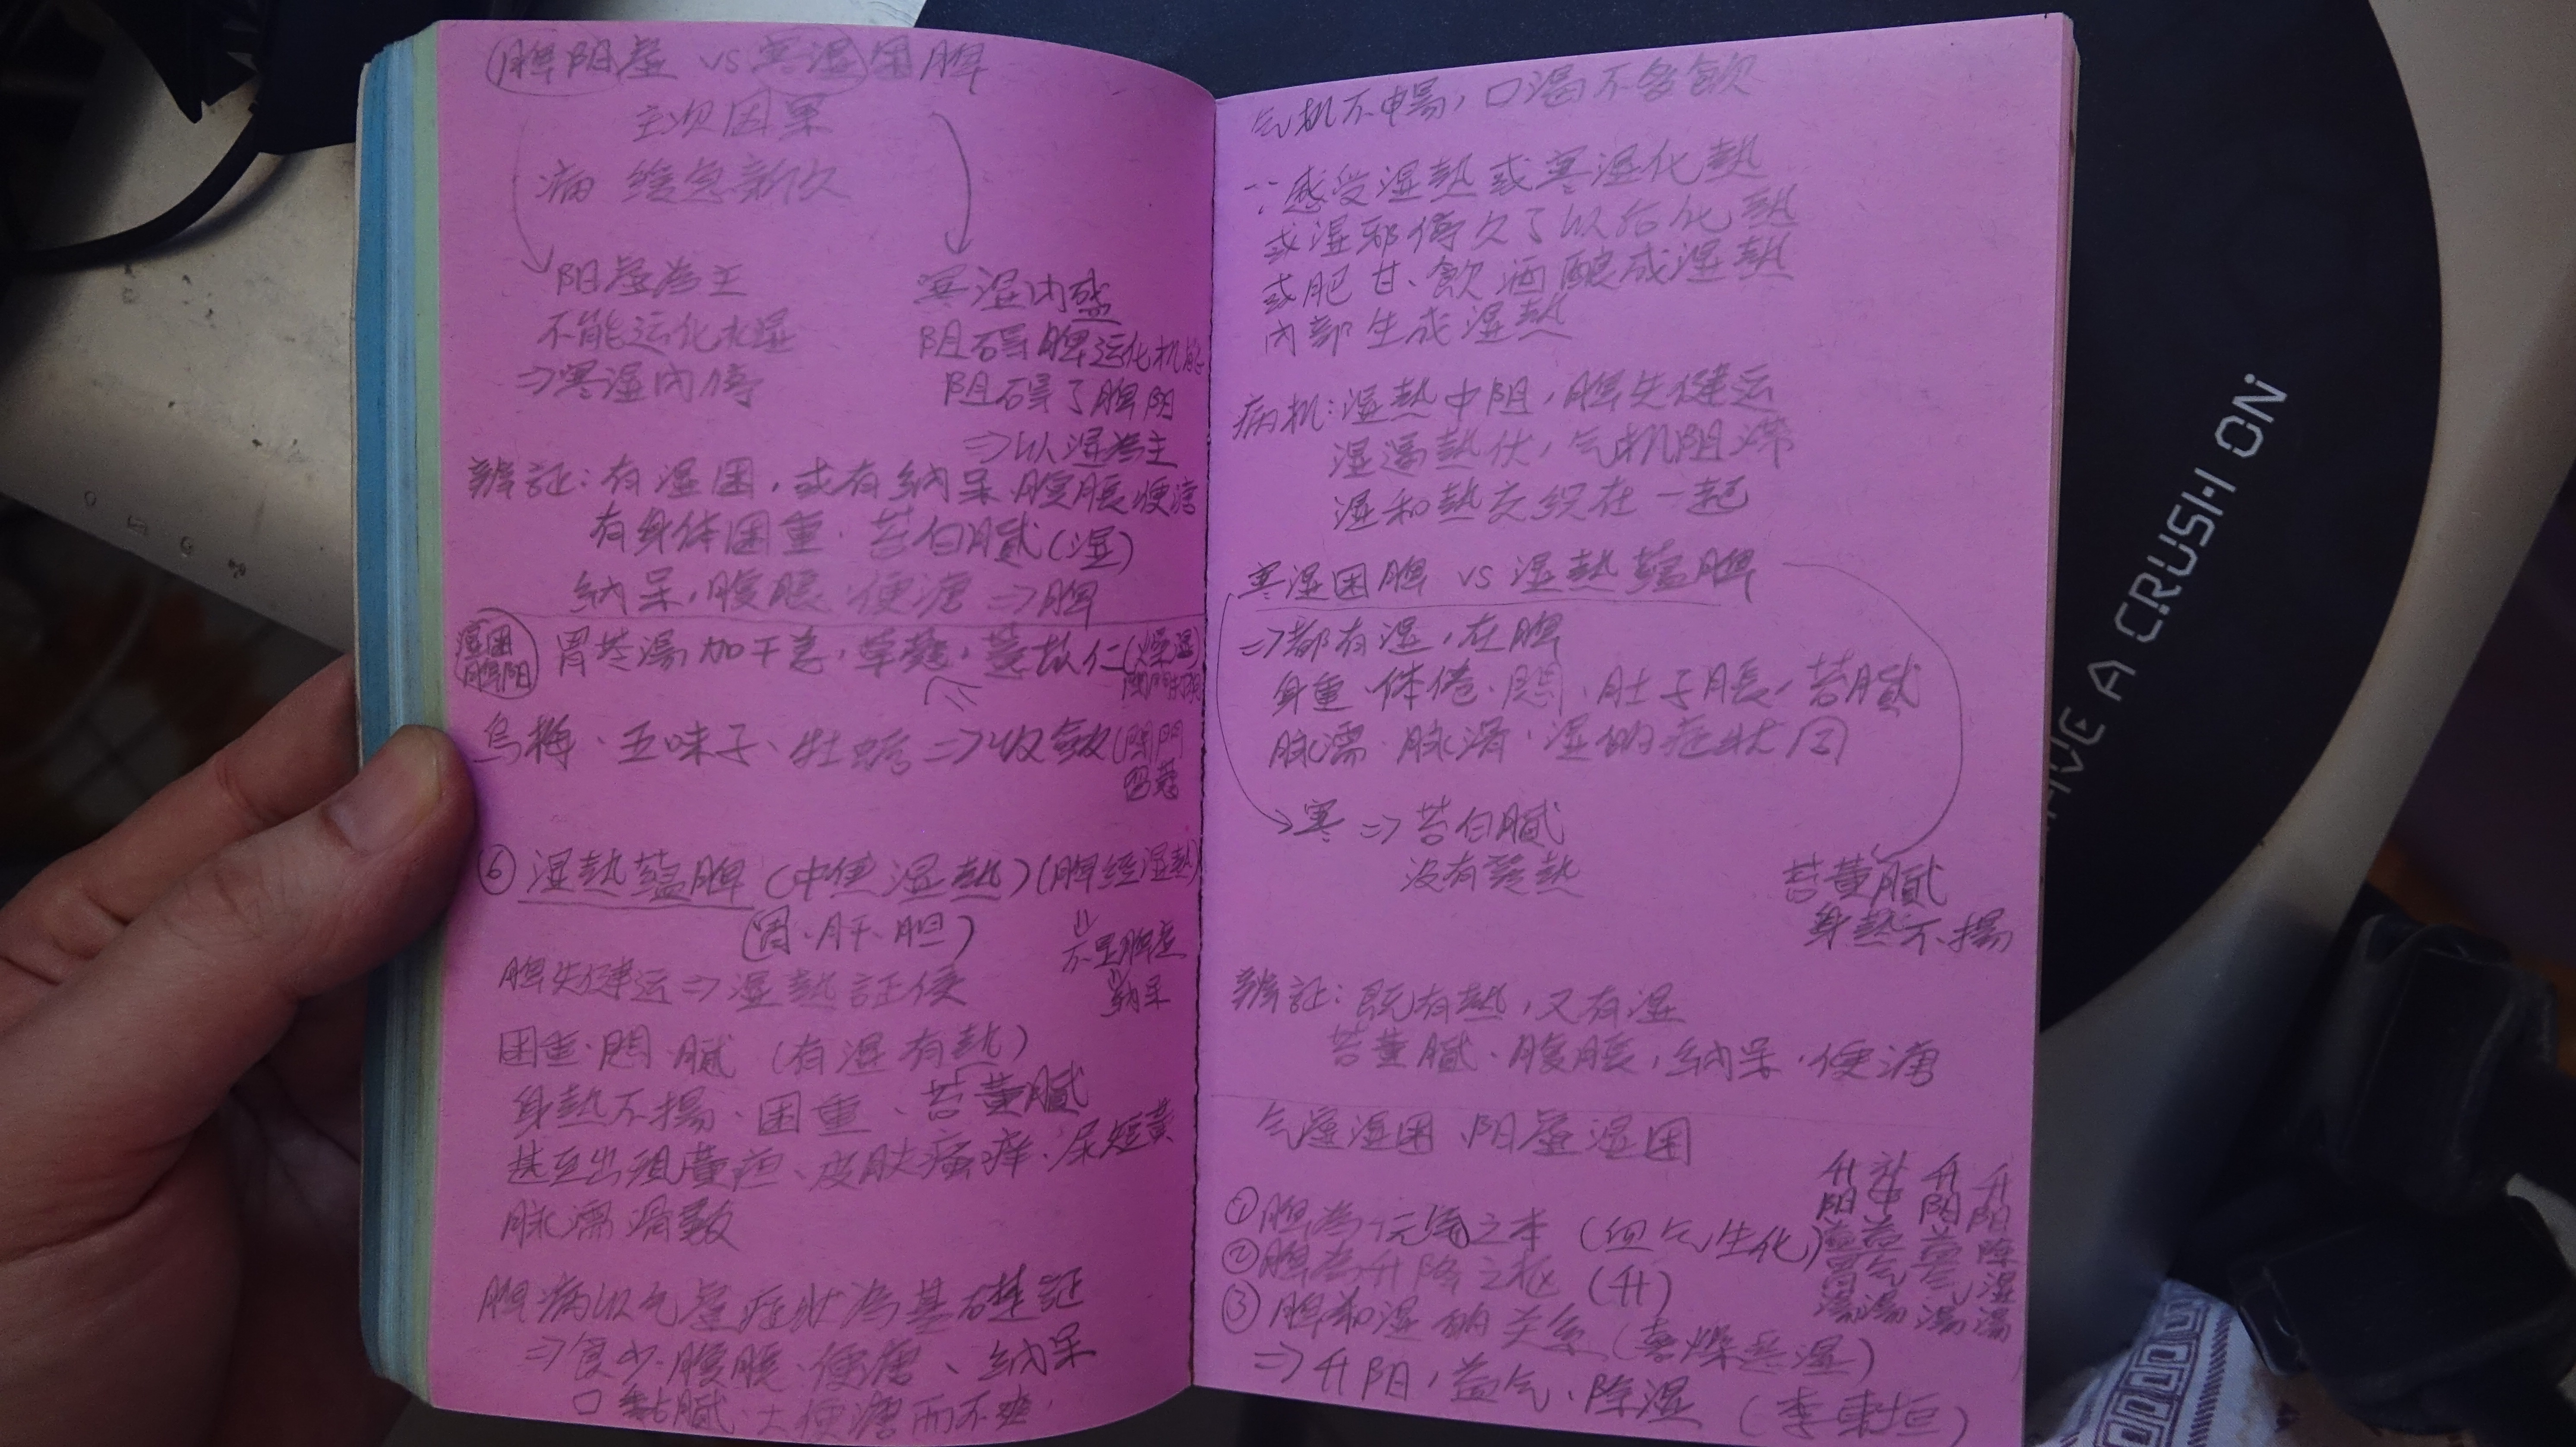 脾阳虚 vs 寒湿困脾
主次因果
病 缓急新久
阳虚為主
不能运化水湿
⇒寒湿内停
寒湿内盛
阻碍脾运化机能
阻碍了脾阳
⇒以湿為主
辨証:有湿困,或有納呆 腹脹 便溏
有身体困重·苔白膩(湿)
納呆,腹脹·便溏 ⇒脾
湿困
脾阳
胃苓湯加干姜,草蔻,薏苡仁(燥湿)
烏梅、五味子、牡蛎⇒收歛(閉門
留寇
⑥湿熱蕴脾(中焦湿熱)(脾经湿熱)
(胃·肝·胆)
不足脾症
納呆
脾失健运⇒湿熱証候
困重·悶·膩(有湿有熱)
身熱不揚·困重、苔黄膩
甚至出現黄疸、皮肤瘙痒、尿短黄
脉濡滑数
脾病以气虚症状為基礎証
⇒食少·腹脹·便溏、納呆
口黏膩·大便溏而不爽
气机不暢,口渴不多飲
∵感受湿熱或寒湿化熱
或湿邪停久了以后化熱
或肥甘、飲酒釀成湿熱
内部生成湿熱
病机:湿熱中阻,脾失健运
湿遏熱伏,气机阻滞
湿和熱交织在一起
寒湿困脾 vs 湿熱蕴脾
⇒都有湿,在脾
身重·体倦·悶·肚子脹·苔膩
脉濡·脉滑·湿的症状同
寒⇒苔白膩
没有發熱
苔黄膩
身熱不揚
辨証:既有熱,又有湿
苔黄膩·腹脹,納呆·便溏
气虚湿困 阳虚湿困
①脾為元氣之本(血气生化)
②脾為升降之枢(升)
③脾和湿的关系(喜燥惡湿)
⇒升阳,益气、除湿(李東垣)
升阳益胃湯
补中益气湯
升阳益气湯
升阳除湿湯
HAVE A CRUSH ON